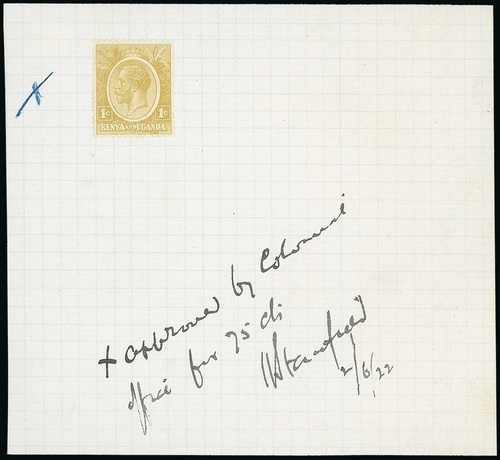 1c 1c
KENYA AND UGANDA
x approved by Colonial
office for 75 cts
2/6/22